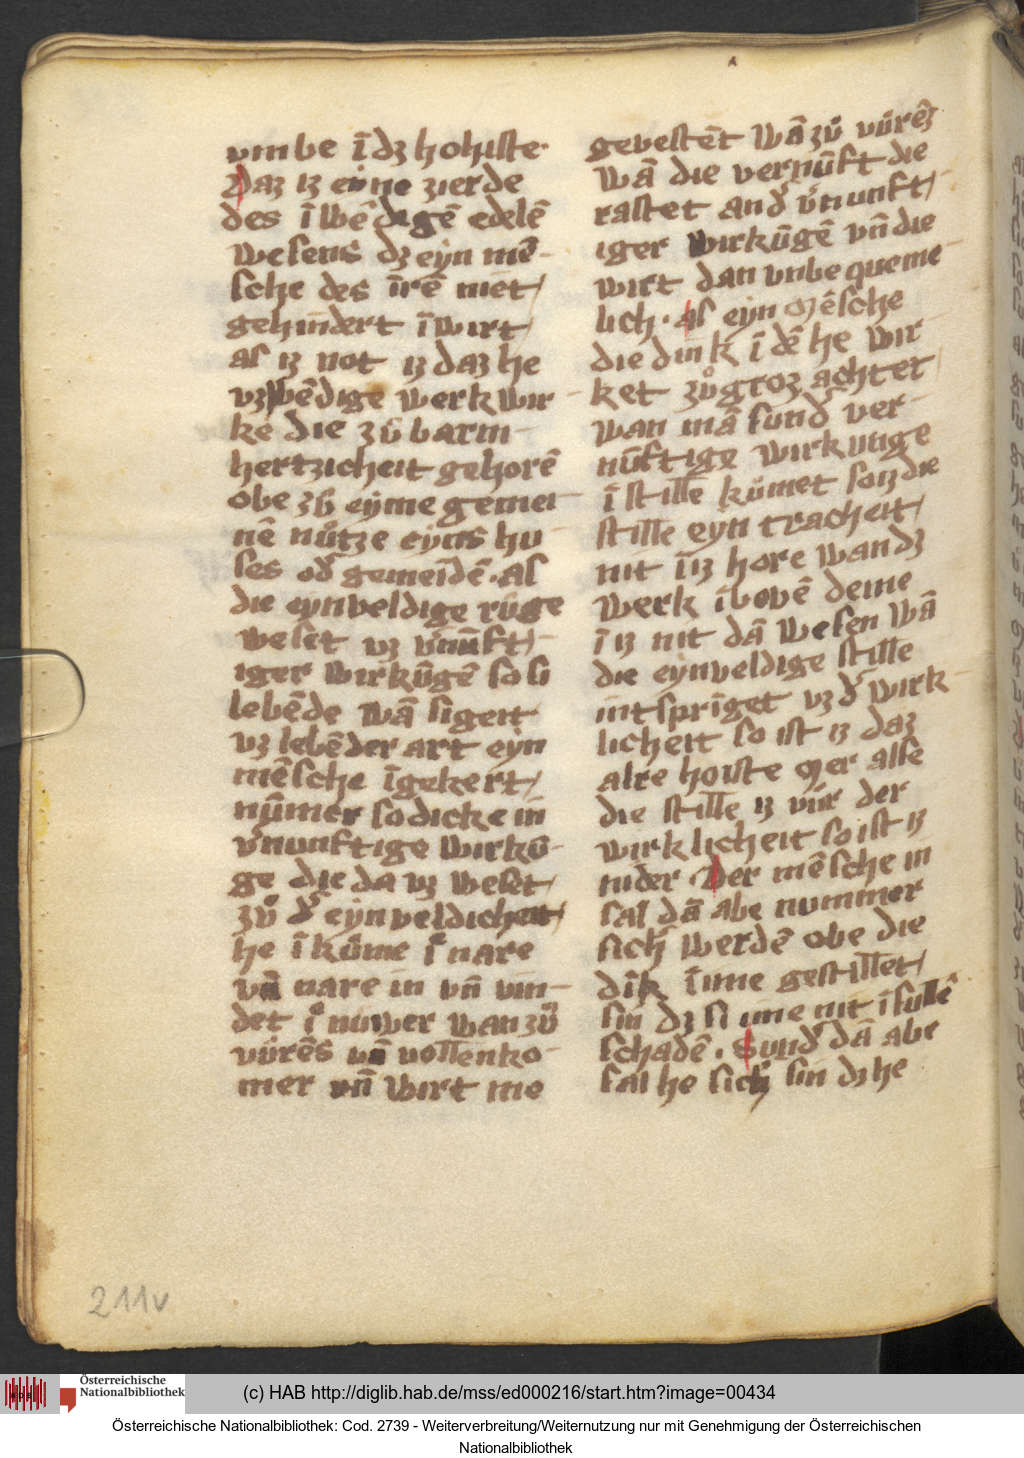 vmbe ī dꝫ hohiste·
Daz iz eyne zierde
des īwēdigē edelē
wesens dꝫ eyn mē-
sche des īrē niet/
gehindert īwirt/
als iz not iz daz he
vzwēdige werk wir-
ke die zů barm-
hertzicheit gehorē
obe zů eyme gemei-
nē nůtze eyns hu-
ses od͛ gemeīdē · als
die eynveldige růge
weset vz v͛nūft/-
iger wirkūgē so si
lebēde wā si geit
vz lebēder art eyn
mēsche īgekert/
nūmer so dicke in
v͛nunftige wirkū-
ge die da vz weset/
zů d͛ eynveldicheit/
he ī kůme ī͛ nare
vn̄ nare in vn̄ vin-
det ī͛ nuwer wan zů
vůrēs vn̄ vollenko-
mer vn̄ wirt me
gevestēt wā zů vůrēz
wā die vernūft die
rastet and͛ v͛nunft/-
iger wirkūgē vn̄ die
wirt dan vnbequeme-
lich · als eyn mēsche
die dink ī dē he wir-
ket zů groz achtet
wan mā sund͛ ver-
nūftige wirkunge
ī stille kůmet so iz die
stille eyn tracheit/
nit ī iz hore wan dꝫ
werk ī bovē deme
ī iz nit dā wesen wā
die eynveldige stille
intsprīget vz d͛ wirk-
licheit so ist iz daz
alre hoiste mer alse
die stille iz vůr der
wirklicheit so ist iz
nider · Der mēsche in
sal dā abe nummer
sich werdē obe die
dīk ī ime gestillet/
sin dꝫ si ime nit ī sullē
schadē · Sund͛ dā abe
sal he sich sin dꝫ he
211v
Österreichische
Nationalbibliothek
(c) HAB http://diglib.hab.de/mss/ed000216/start.htm?image=00434
Österreichische Nationalbibliothek: Cod. 2739 - Weiterverbreitung/Weiternutzung nur mit Genehmigung der Österreichischen
Nationalbibliothek